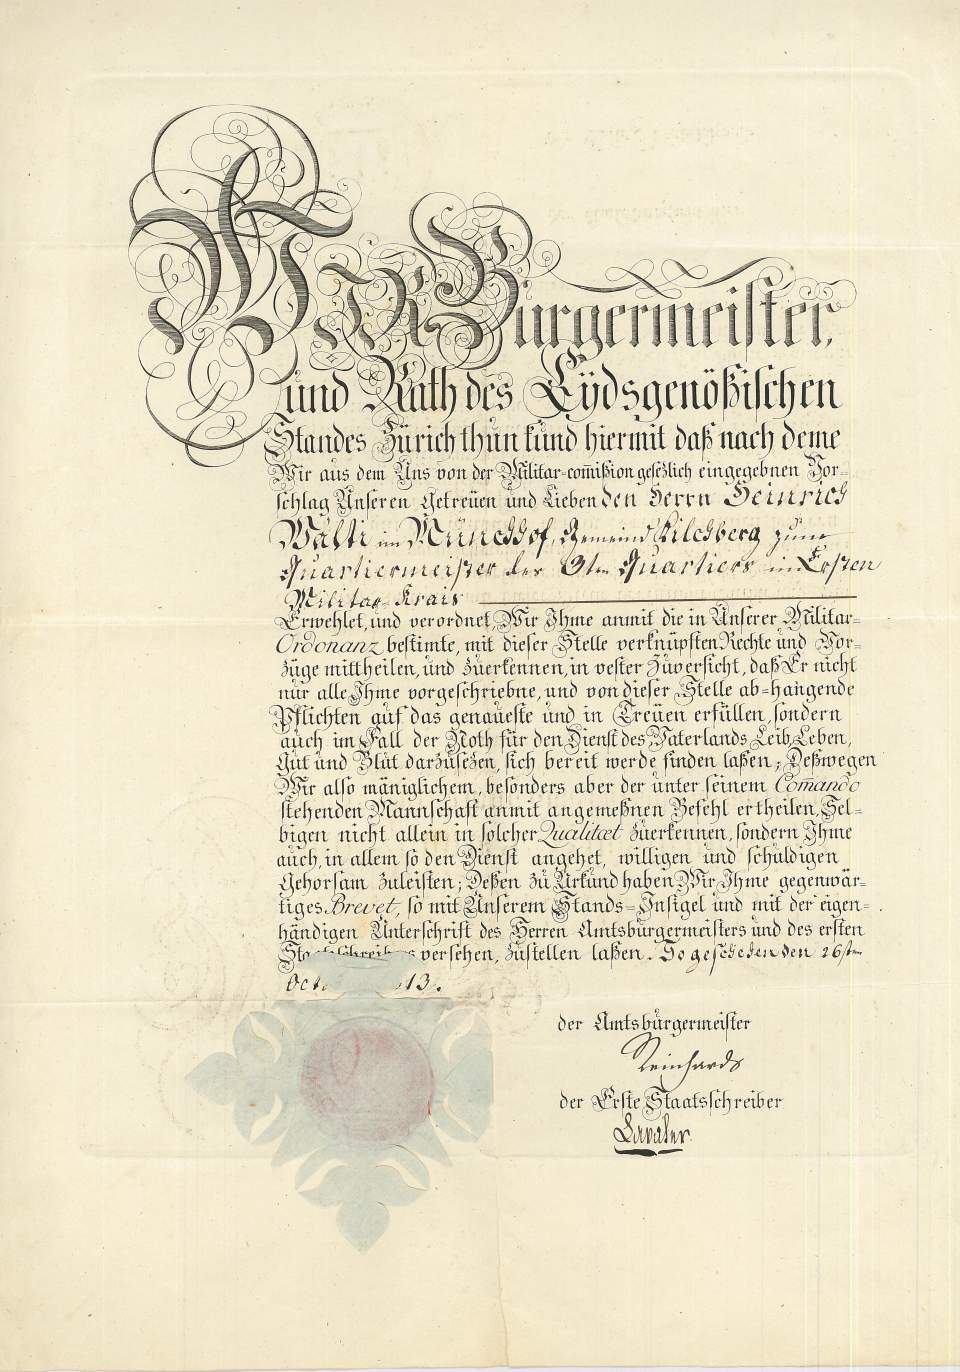 Wir Bürgermeister,
und Rath des Eÿdsgenößischen
Standes Zürich thun kund hiermit daß nach deme
Wir aus dem Uns von der Militar-com̃ißion gesezlich eingegebnen Vor-
schlag Unseren Getreüen und Lieben den Herrn Heinrich
Wälti im Müncḣhof, Gemeind Kilchberg zum
Quartiermeister des 3ten Quartiers im Ersten
Militar-Krais
Erwehlet, und verordnet, Wir Ihme anmit die in Unserer Militar-
Ordonanz bestimte, mit dieser Stelle verknüpften Rechte und Vor-
züge mittheilen, und zuerkennen, in vester Zuversicht, daß Er nicht
nur alle Ihme vorgeschriebne, und von dieser Stelle ab-hangende
Pflichten auf das genaueste und in Treüen erfüllen, sondern
auch im Fall der Noth für den Dienst des Vaterlands Leib, Leben,
Gut und Blut darzusezen, sich bereit werde finden laßen; Deßwegen
Wir also mäniglichem, besonders aber der unter seinem Com̃ando
stehenden Mannschaft anmit angemeßnen Befehl ertheilen, Sel-
bigen nicht allein in solcher Qualitæt zuerkennen, sondern Ihme
auch, in allem so den Dienst angehet, willigen und schuldigen
Gehorsam zuleisten; Deßen zu Urkund haben Wir Ihme gegenwär-
tiges Brevet, so mit Unserem Stands-Insigel und mit der eigen-
händigen Unterschrift des Herren Amtsbürgermeisters und des ersten
Staatsschreibers versehen, zustellen laßen. So geschehen den 26sten
Octo 13.
der Amtsbürgermeister
Reinhard
der Erste Staatsschreiber
Lavater